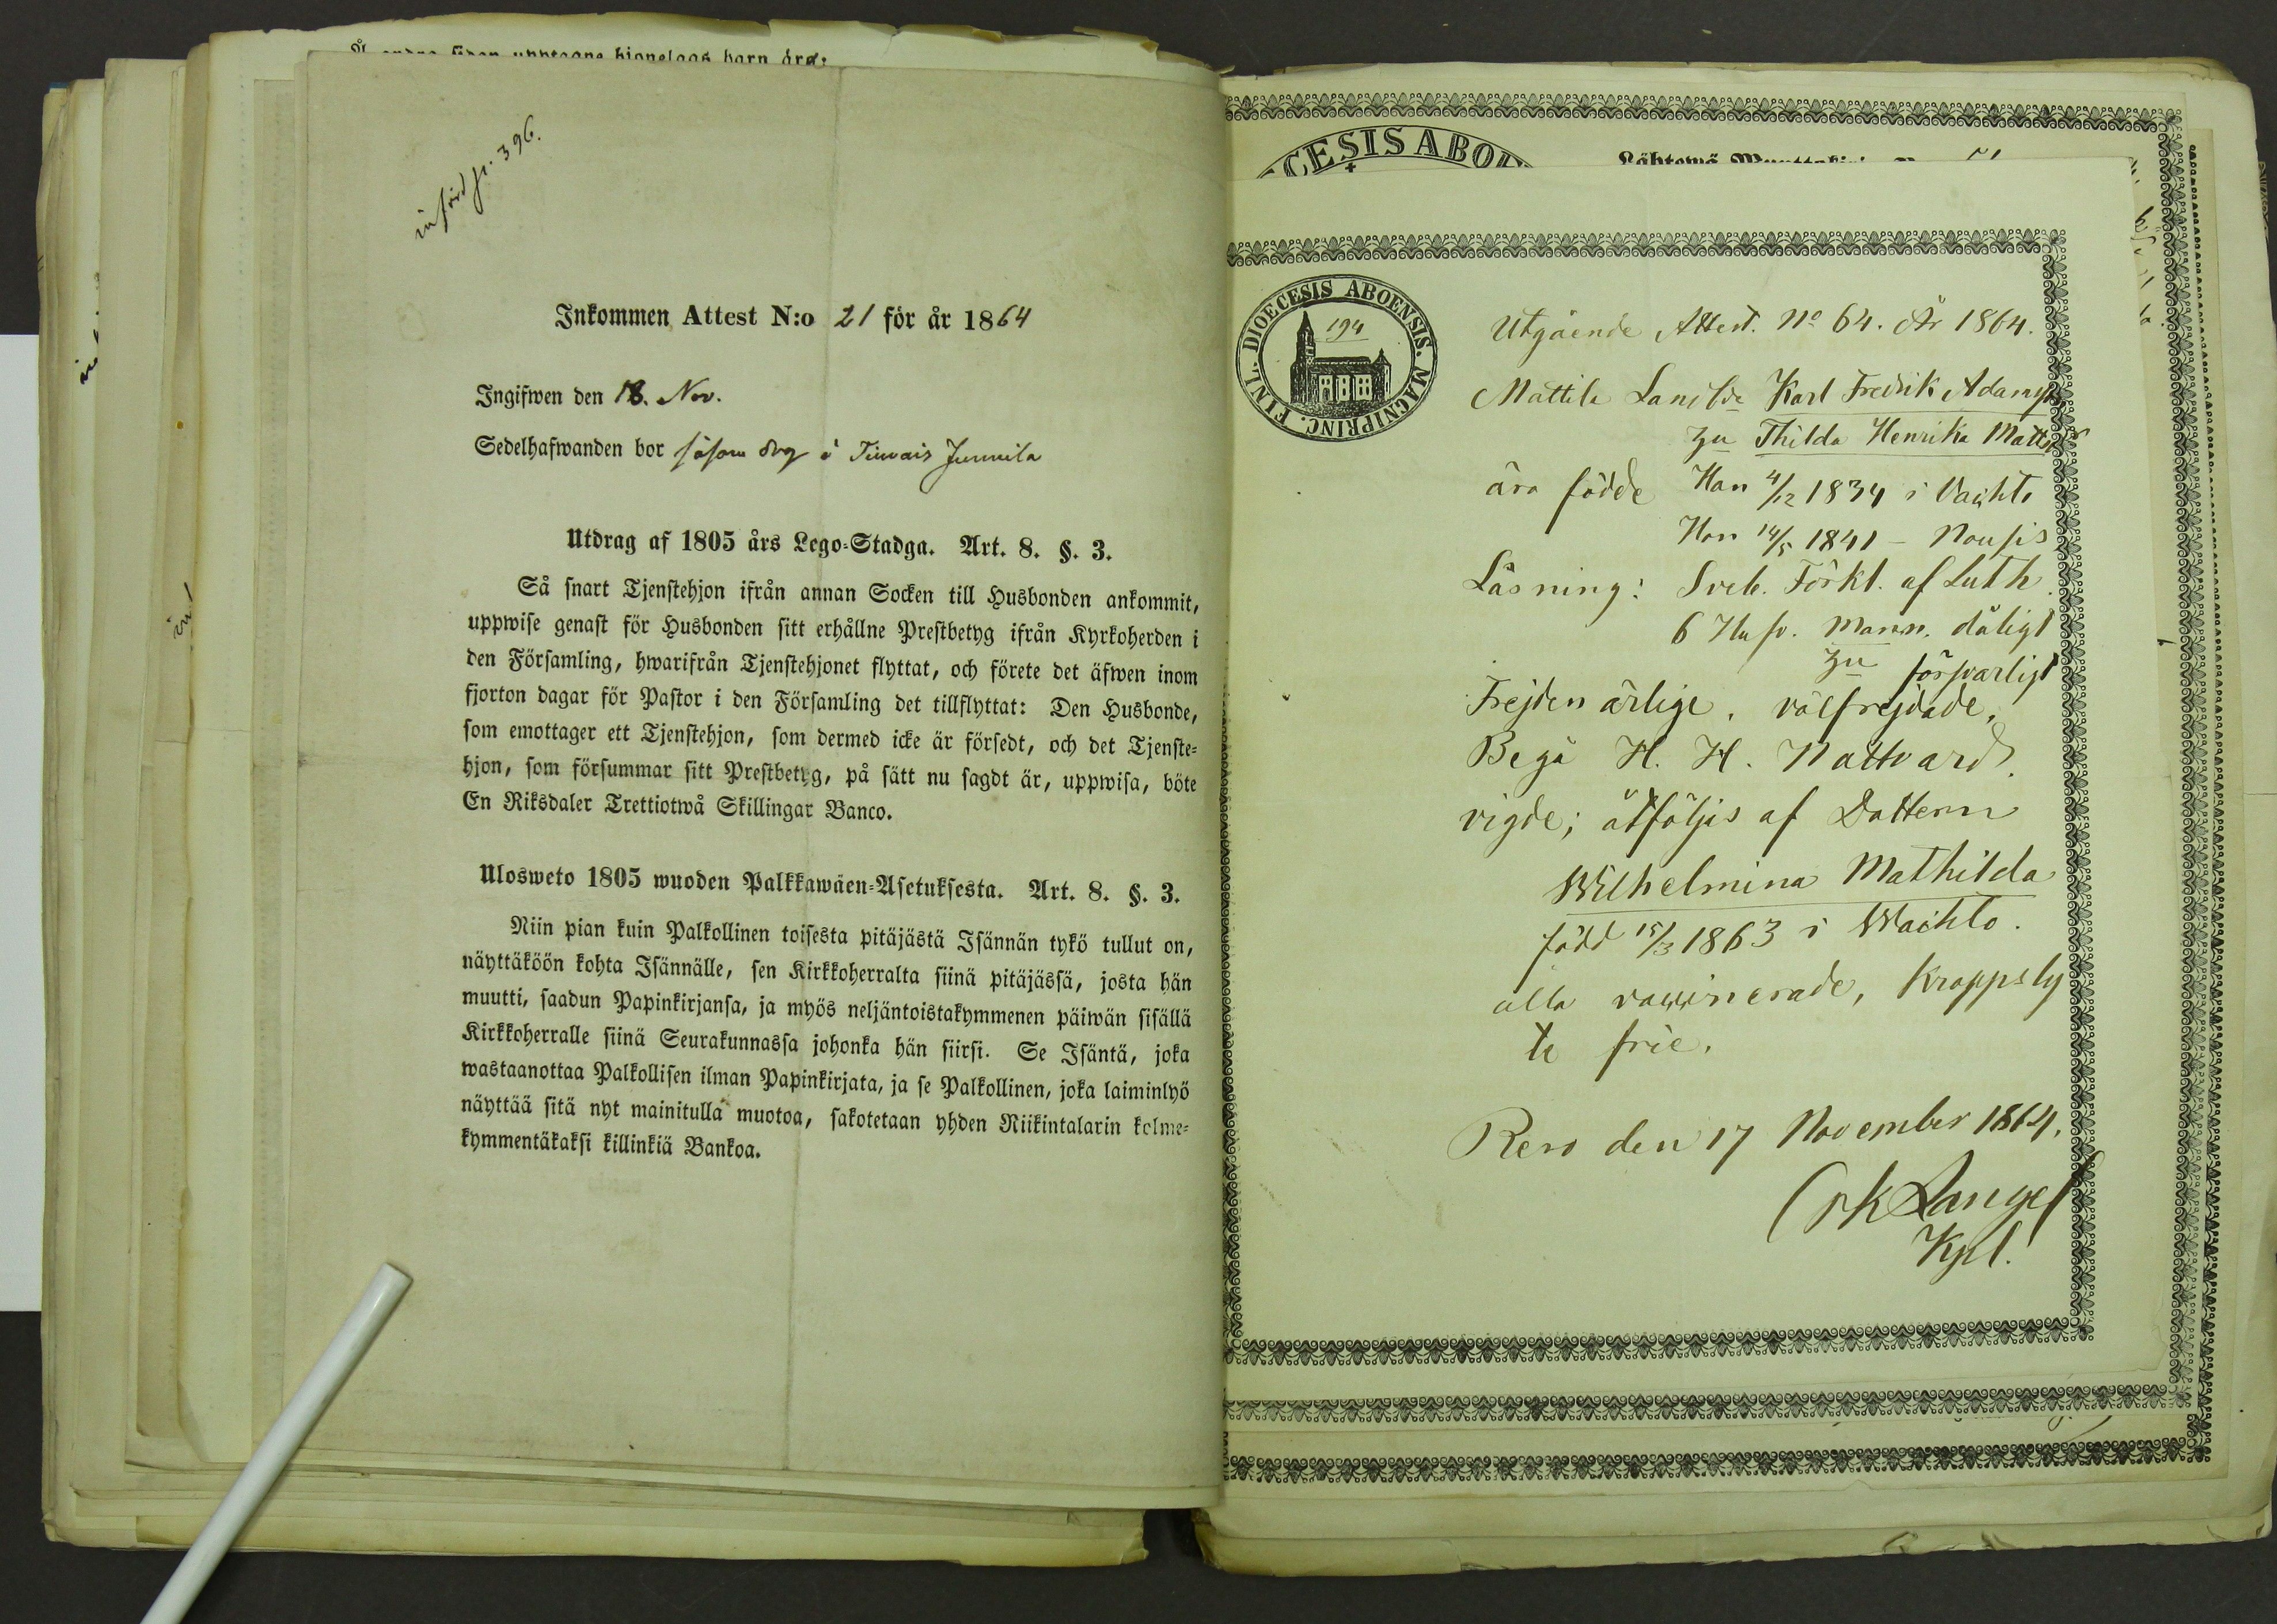 införd p. 396.
Inkommen Attest N:o 21 för år 1864
Ingifwen den 18. Nov.
Sedelhafwanden bor såsom drg å Tiuvais Junnila
Utdrag af 1805 års Lego-Stadga. Art. 8. §. 3.
Så snart Tjenstehjon ifrån annan Socken till Husbonden ankommit,
uppwise genast för Husbonden sitt erhållne Prestbetyg ifrån Kyrkoherden i
den Församling, hwarifrån Tjenstehjonet flyttat, och förete det äfwen inom
fjorton dagar för Pastor i den Församling det tillflyttat: Den Husbonde,
som emottager ett Tjenstehjon, som dermed icke är försedt, och det Tjenste-
hjon, som försummar sitt Prestbetyg, på sätt nu sagdt är, uppwisa, böte
En Riksdaler Trettiotwå Skillingar Banco.
Ulosweto 1805 wuoden Palkkawäen-Asetuksesta. Art. 8. §. 3.
Niin pian kuin Palkollinen toisesta pitäjästä Isännän tykö tullut on,
näyttäköön kohta Isännälle, sen Kirkkoherralta siinä pitäjässä, josta hän
muutti, saadun Papinkirjansa, ja myös neljäntoistakymmenen päiwän sisällä
Kirkkoherralle siinä Seurakunnassa johonka hän siirsi. Se Isäntä, joka
wastaanottaa Palkollisen ilman Papinkirjata, ja se Palkollinen, joka laiminlyö
näyttää sitä nyt mainitulla muotoa, sakotetaan yhden Riikintalarin kolme-
kymmentäkaksi killinkiä Bankoa.
CESIS ABO
DIOECESIS ABOENSIS. MAGNI PRINC. FINL.
194
Utgående Attest. No 64. År 1864.
Mattila Karl Fredrik Adamss
Thilda Henrika Matts
äro födde Han 4/12 1834 i Vachto
Hon 14/5 1841 - Nousis
Läsning: Sveb. Förkl. af Luth.
6 Husv. Mann. dåligt
försvarligt
Frejden ärlige, välfrejdade,
Begå H. H. Nattvard.
vigde; åtföljes af Dottern
Wilhelmina Mathilda
född 15/3 1863 i Wachto.
alla vaccinerade, Kroppsly
te frie.
Reso den 17 November 1864.
Kpl.